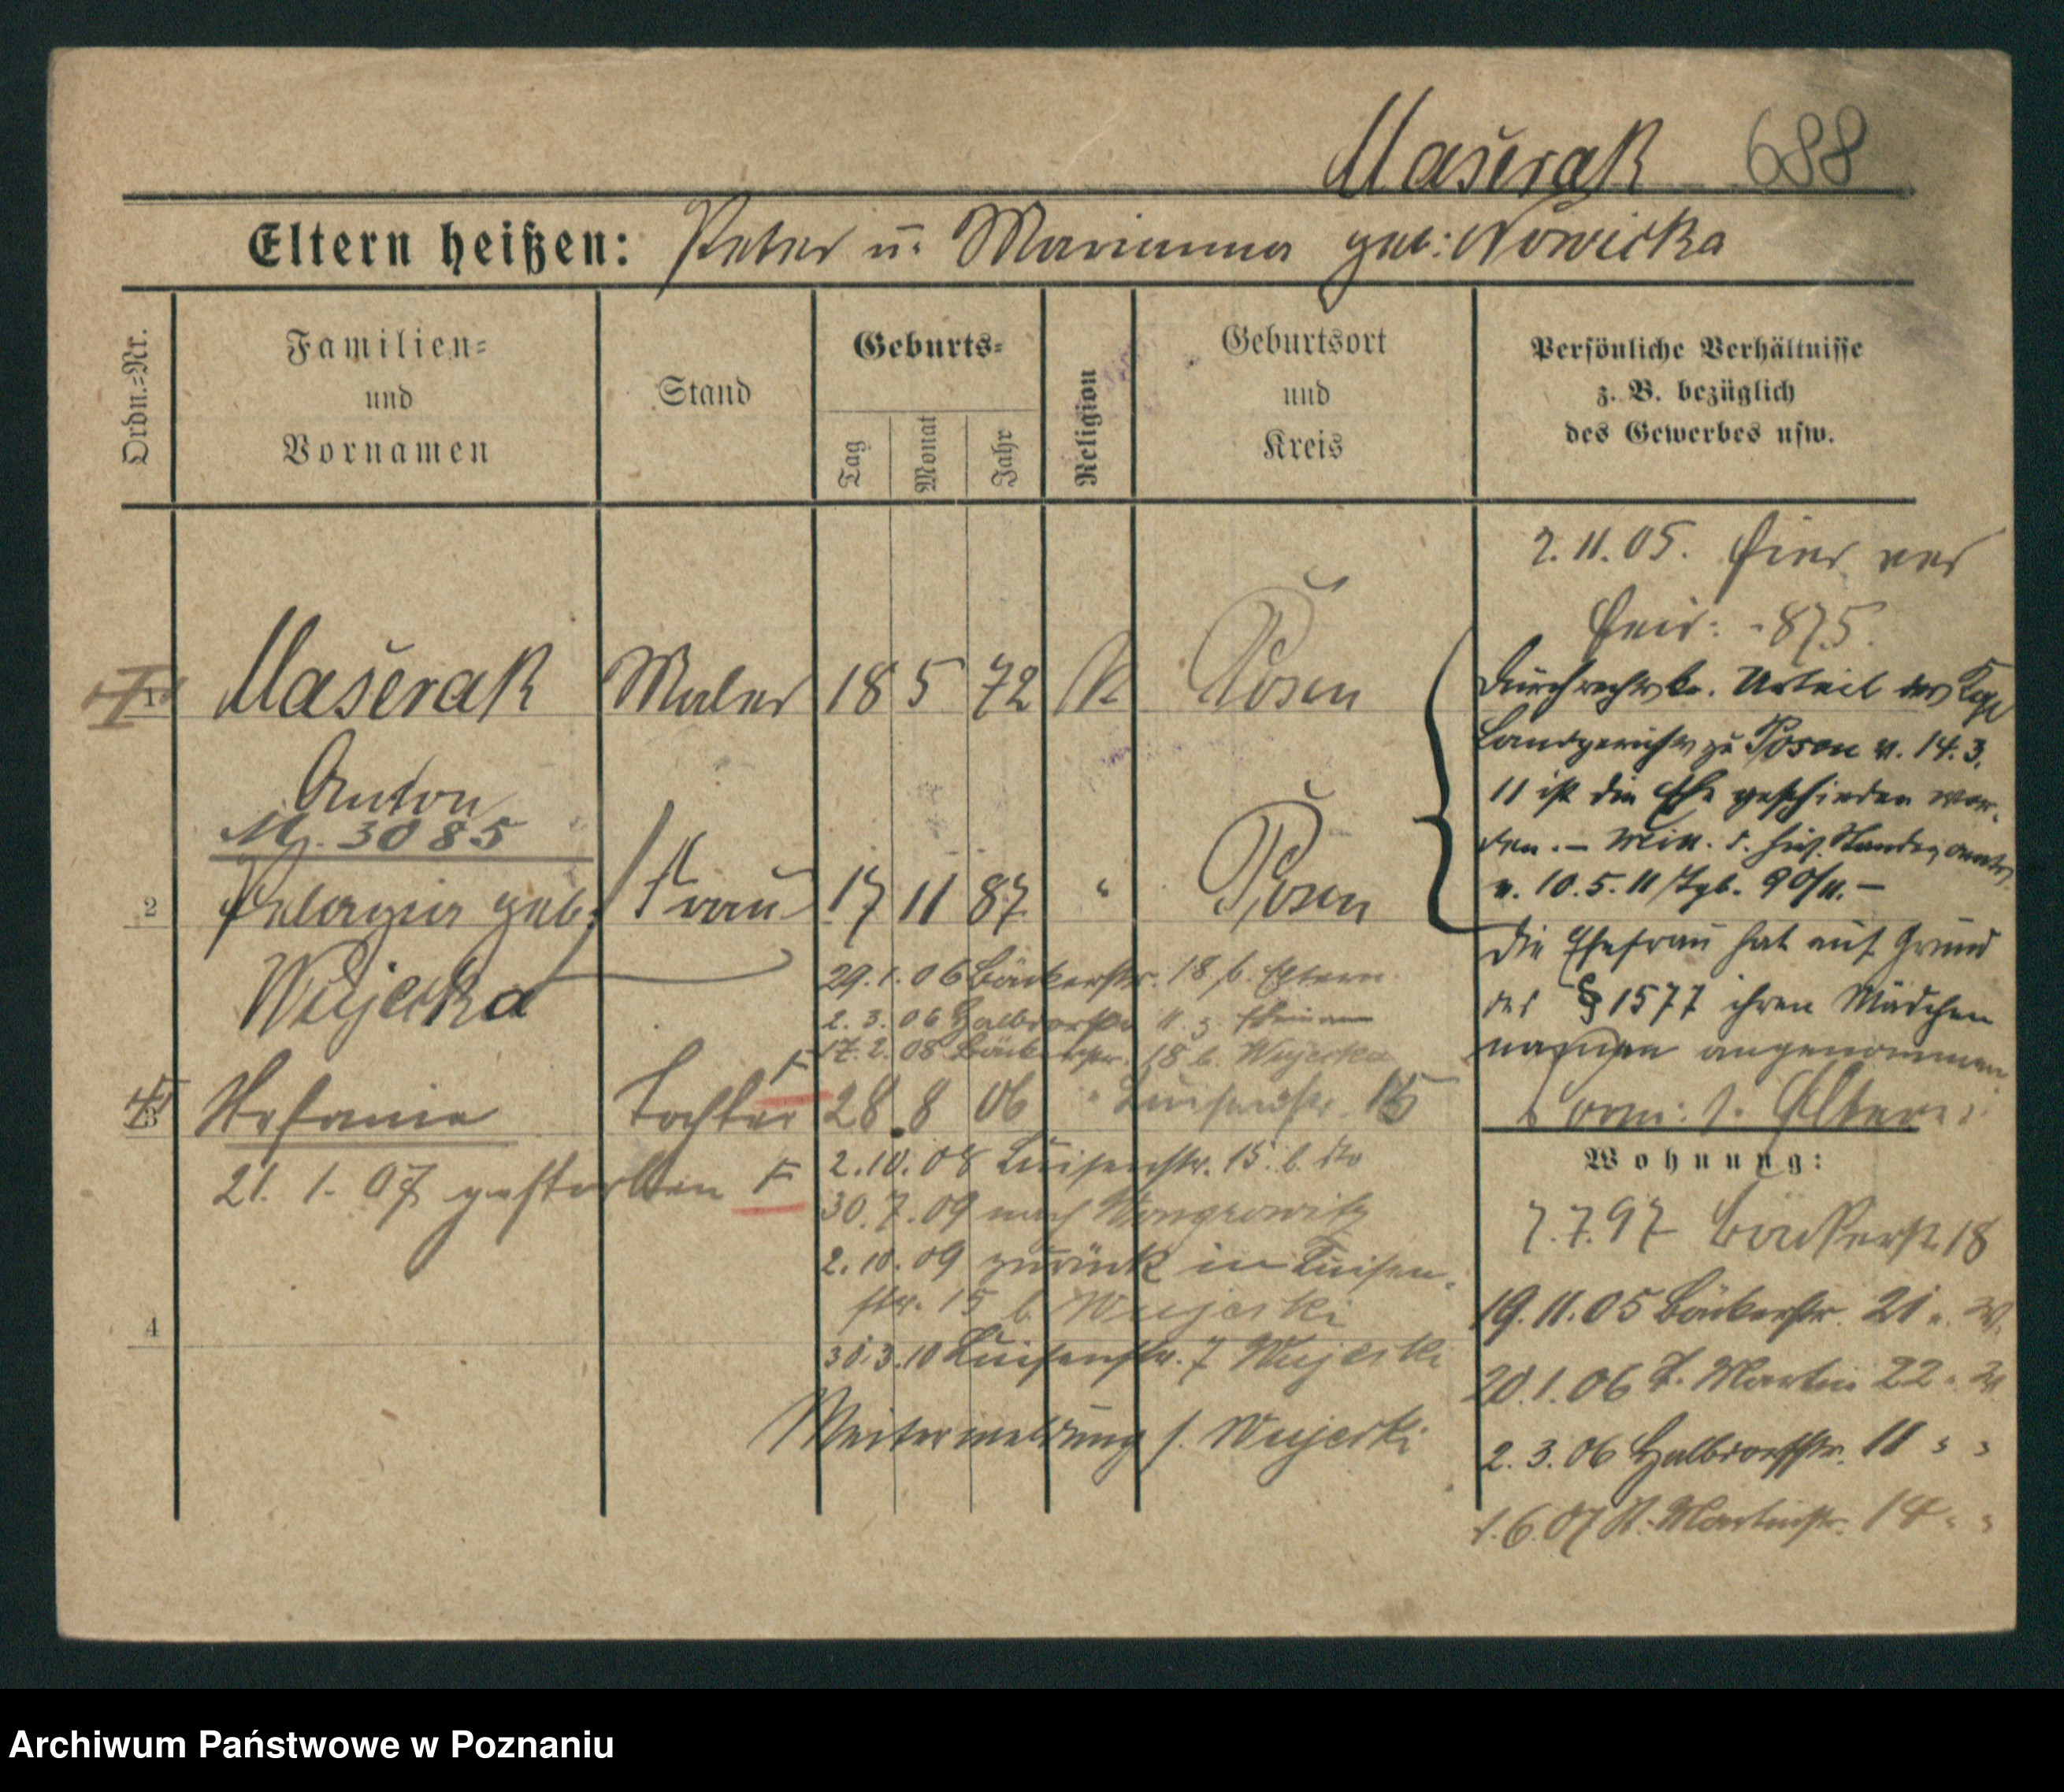 Mašerak 688
Eltern heißen: Peter u. Marianna geb: Nowicka
Ordn.=Nr.
Familien=
und
Vornamen
Stand
Geburts=
Tag
Monat
Jahr
Religion
Geburtsort
und
Kreis
Persönliche Verhältnisse
z. B. bezüglich
des Gewerbes usw.
2.11.05. hier ver
heir: 875.
1 Mašerak Maler 18 5 72 K Posen
Anton
M. 3085
Durch rechtskr. Urteil des Kgl
Landgerichts zu Posen v. 14.3.
11 ist die Ehe geschieden wor-
den. – Mitt. d. hies. Standesamtes
v. 10.5.11 Tgb. 90/11. –
2 Pelagia geb. Frau 17 11 87 " Posen
Wujecka
Die Ehefrau hat auf Grund
des § 1577 ihren Mädchen
namen angenommen
29.1.06 Bäckerstr. 18 b. Eltern
2.3.06 Halbdorfstr 11 z. Ehemann
17.2.08 Bäckerstr. 18 b. Wujecka
3 Stefania Tochter 28 8 06 " Luisenstr. 15
21.1.07 gestorben
2.10.08 Luisenstr. 15. b. dto
30.7.09 nach Wongrowitz
2.10.09 zurück in Luisen-
str. 15 b. Wujecki
4
30.3.10 Luisenstr. 7 Wujecki
Weitermeldung s. Wujecki
s. Eltern
Wohnung:
7.7.97 Bäckerst. 18
19.11.05 Bäckerstr. 21 " W.
20.1.06 St. Martin 22 " W
2.3.06 Halbdorfstr. 11 " "
1.6.07 St. Martinstr. 14 " "
Archiwum Państwowe w Poznaniu